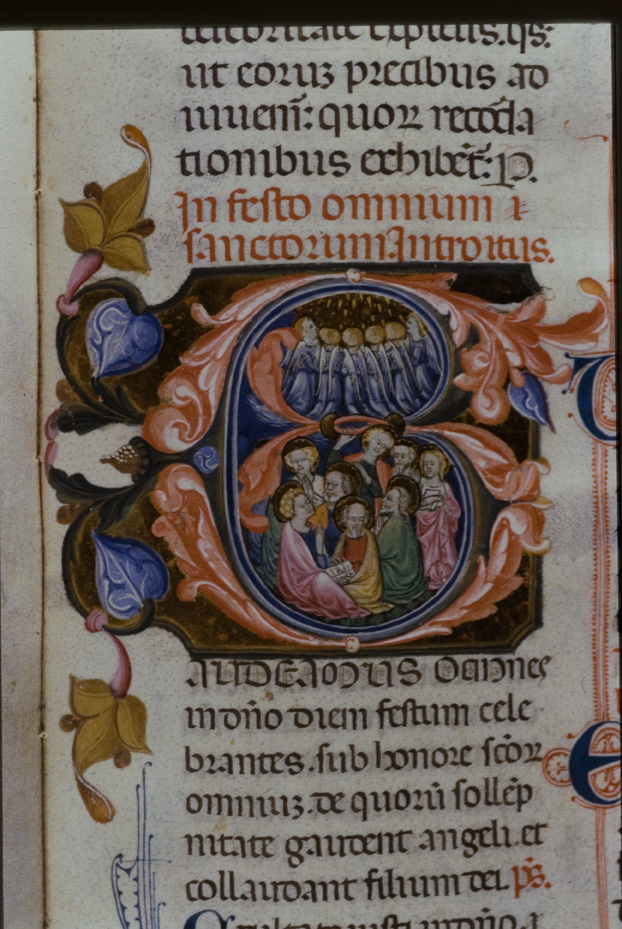 ut eoruz precibus ad
iuuem̄: quoꝝ
tionibus exhibet̄: P.
In festo omnium
sanctorum Introitus.
G
AUDEAMUS Omnes
in dn̄o diem festum cele
brantes. sub honore sc̄oꝝ
omniuz. de quorū sollēp
nitate gaudent angeli. et
collaudant filium dei. p̄s.